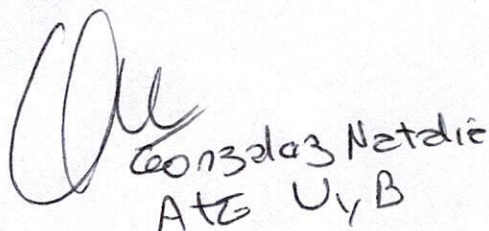 Gonzalez Natalia
Ate U y B